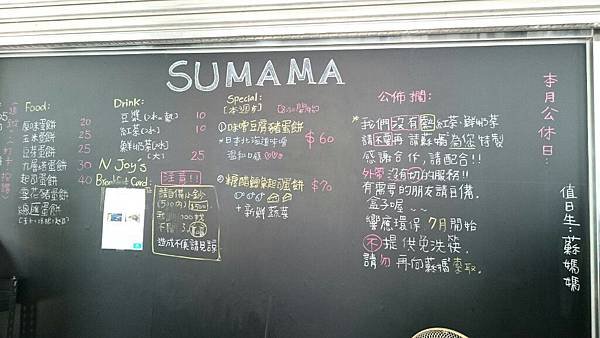 SUMAMA
Food:
原味蛋餅 20
玉米蛋餅 25
豆芽蛋餅 25
九層塔蛋餅 30
起司蛋餅 30
雪花豬蛋餅 40
總匯蛋餅
Drink:
豆漿(冰、熱) 10
紅茶(冰) 10
鮮奶茶(冰)
(大) 25
N Joy's
Breakfast Card:
注意!!
請自備小鈔
(5/10內)
造成不便請見諒
Special:
(本週5)
①味噌豆腐豬蛋餅 $60
*日本北海道味噌
溫和口感
②糖醋雞柳起司蛋餅 $70
+新鮮蔬菜
公佈欄:
*我們沒有賣紅茶、鮮奶茶
請不要再請蘇媽為您特製
感謝合作,請配合!!
外帶沒有切的服務!!
有需要的朋友請自備
盒子喔~~
響應環保 7月開始
不提供免洗筷.
請勿再向蘇媽索取.
本月公休日:
值日生:蘇媽媽